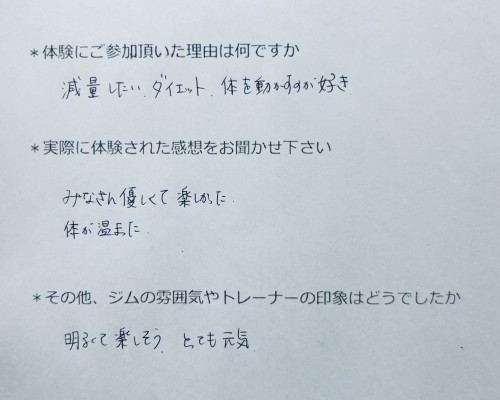 *体験にご参加頂いた理由は何ですか
減量したい、ダイエット、体を動かすのが好き
*実際に体験された感想をお聞かせ下さい
みなさん優しくて楽しかった。
体が温まった。
*その他、ジムの雰囲気やトレーナーの印象はどうでしたか
明るくて楽しそう。とても元気